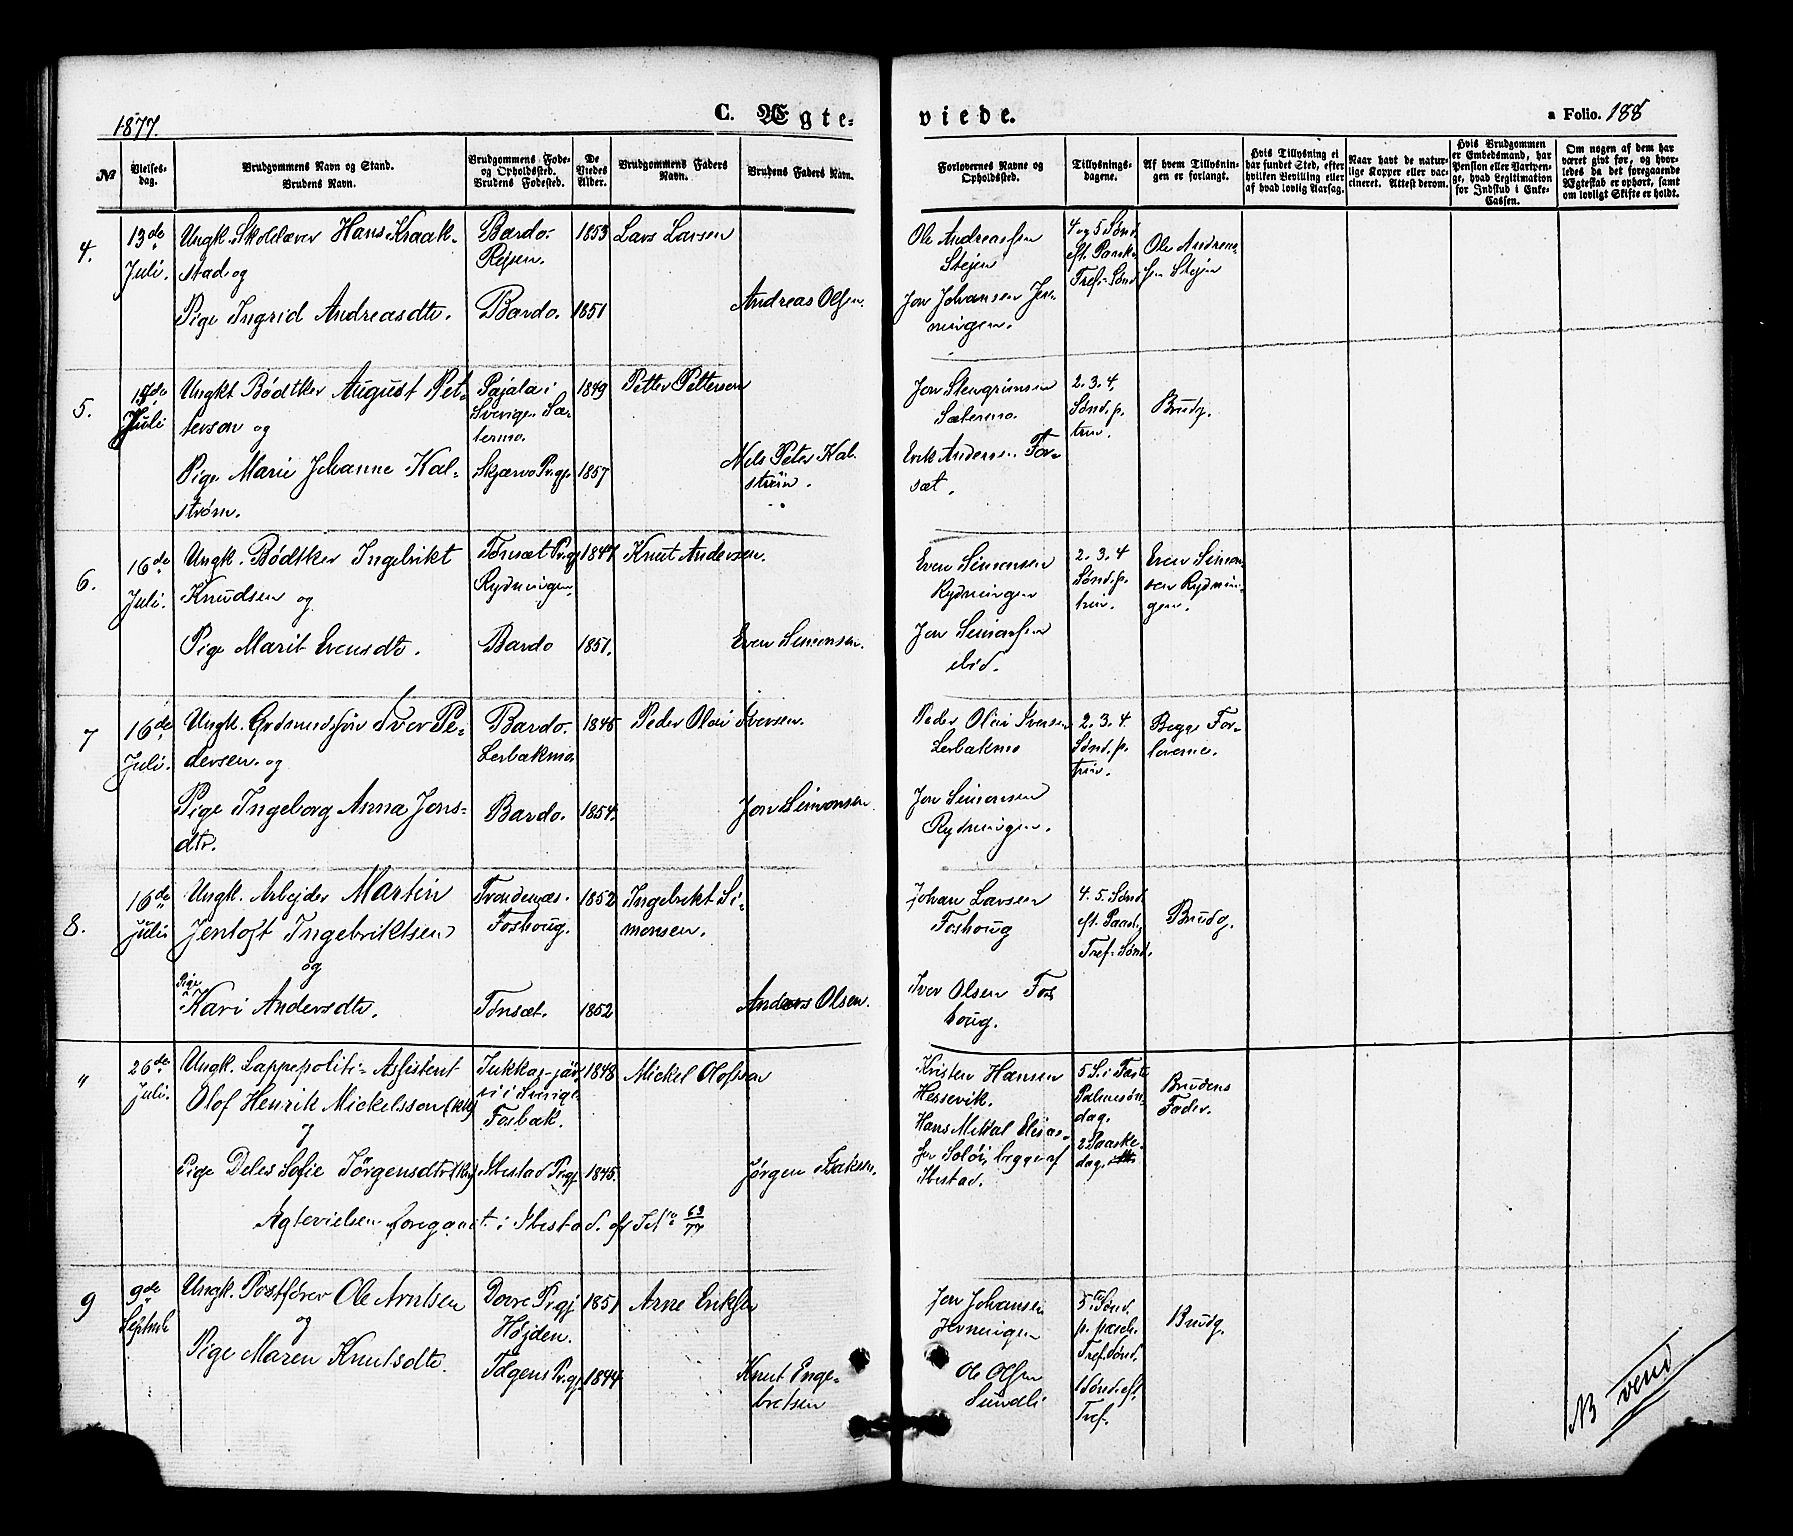 1877.
C. Ægte-
viede.
a Folio. 188
№
Vielses-
dag.
Brudgommens Navn og Stand.
Brudens Navn.
Brudgommens Føde-
og Opholdssted.
Brudens Fødested.
De
Viedes
Alder.
Brudgommens Faders
Navn.
Brudens Faders Navn.
Forlovernes Navne og
Opholdssted.
Tillysnings-
dagene.
Af hvem Tillysnin-
gen er forlangt.
Hvis Tillysning ei
har fundet Sted, efter
hvilken Bevilling eller
af hvad lovlig Aarsag.
Naar havt de natur-
lige Kopper eller vac-
cineret. Attest derom.
Hvis Brudgommen
er Embedsmand, har
Pension eller Vartpen-
ge, hvad Legitimation
for Indskud i Enke-
Cassen.
Om nogen af dem har
været gift før, og hvor-
ledes da det foregaaende
Ægteskab er ophørt, samt
om lovligt Skifte er holdt.
4.
13de
Juli.
Ungk. Skolelærer Hans Kraak-
stad og
Pige Ingrid Andreasdtr.
Bardo-
Rejsen.
Bardo.
1853
1851
Lars Larsen
Andreas Olsen.
Ole Andreassen
Stejen
Jon Johansen Jer-
ningen.
4 og 5 Sønd.
eft. Paaske
Tref. Sønd
Ole Andreas-
sen Stejen
5.
Juli
Ungkt. Bødtker August Pet-
terson og
Pige Marie Johanne Kal-
strøm.
Pajala i
Sverige. Sæ-
termo.
Skjærvø Prgj.
1849
1857
Petter Petterson
Nils Peter Kal-
strøm.
Jon Stengrimsen
Sætermo.
Erik Andersen For-
sæt.
2. 3. 4.
Sønd. p.
trin.
Brudg.
6.
16de
Juli.
Ungk. Bødtker Ingebrikt
Knudsen og
Pige Marit Evensdtr.
Tønsæt Prgj
Rydningen.
Bardo
1847
1851.
Knut Andersen.
Even Simonsen.
Even Simonsen
Rydningen
Jon Simonsen
ibid.
2. 3. 4
Sønd. p.
trin.
Even Simon-
sen Rydnin-
gen.
7
16de
Juli.
Ungk. Grdmandssøn Iver Pe-
dersen og
Pige Ingeborg Anna Jons-
dtr.
Bardo.
Lerbakmo
Bardo.
1845
1854.
Peder Olai Iversen.
Jon Simonsen
Peder Olai Iversen
Lerbakmo
Jon Simonsen
Rydningen.
2. 3. 4
Sønd. p.
trin.
Begge For-
loverne.
8.
16de
Juli
Ungk. Arbejder Martin
Jentoft Ingebriktsen
og
Pige
Kari Andersdtr.
Trondenæs.
Foshoug.
Tønsæt.
1852
1852
Ingebrikt Si-
monsen.
Anders Olsen.
Johan Larsen
Foshoug
Iver Olsen Fos
houg.
4. 5. Sønd.
eft. Paaske
Tref. Sønd.
Brudg.
"
26de
Juli.
Ungk. Lappepoliti-Assistent
Olof Henrik Mickelsson
og
Pige Deles Sofie Jørgensdtr
Jukkas-jär-
vi i Sverige
Fosbak.
Ibestad Prgj.
1848
1845.
Mickel Olofsson
Jørgen Isaksen.
Kristen Hansen
Hessevik.
Hans Mikkal Elias-
sen Soløi, begge af
Ibestad.
5 S. i Faste
Palmesøn-
dag.
2 Paaske-
dag.
Brudens
Fader.
Ægtevielsen foregaaet i Ibestad 69/77
9
9de
Septmb
Ungk. Postfører Ole Arntsen
og
Pige Maren Knutsdtr.
Dovre Prgj
Højden.
Tolgens Prgj.
1851
1844
Arne Eriksen
Knut Enge-
bretsen
Jon Johansen
Jerningen
Ole Olsen
Sundli
5 Sønd.
p. pasch.
Tref. Sønd.
1 Sønd. eft.
Tref.
Brudg.
NB vend